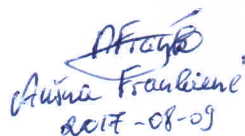 Aušra Frankienė
2017-08-09